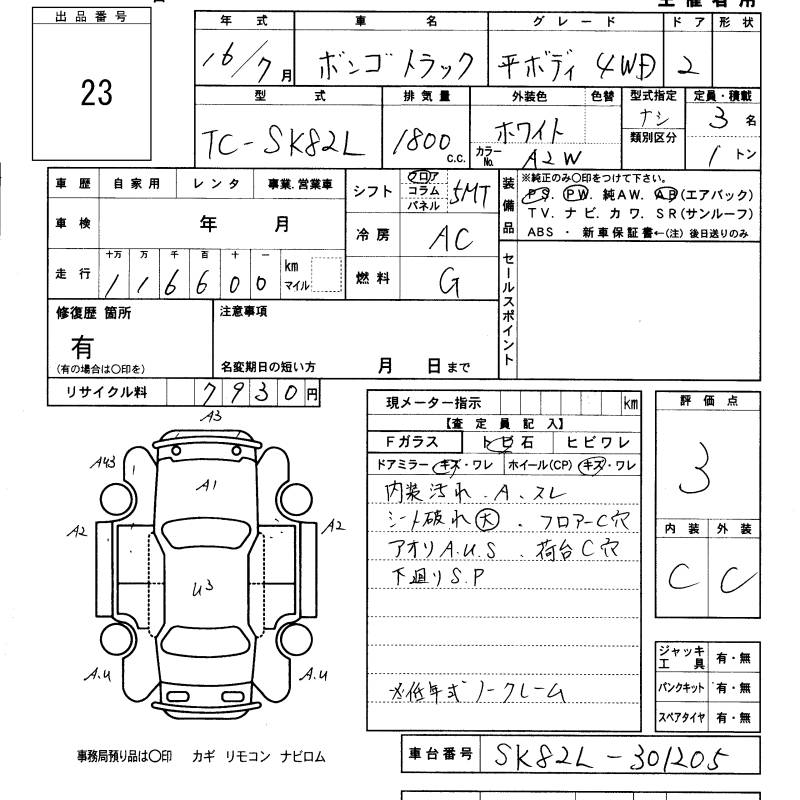 出品番号
23
年式 車名 グレード ドア 形状
16/7月 ボンゴトラック 平ボディ 4WD 2
型式 排気量 外装色 色替 型式指定 定員・積載
TC-SK82L 1800 c.c. ホワイト ナシ 3名
カラーNo. A2W 類別区分 1トン
車歴 自家用 レンタ 事業.営業車
車検 年 月
走行 十万 万 千 百 十 一
116600 km マイル
シフト フロア コラム パネル 5MT
冷房 AC
燃料 G
装備品
※純正のみ○印をつけて下さい。
PS. PW. 純AW. AB(エアバック)
TV. ナビ. カワ. SR(サンルーフ)
ABS ・ 新車保証書←(注) 後日送りのみ
セールスポイント
修復歴 箇所
有
(有の場合は○印を)
注意事項
名変期日の短い方 月 日まで
リサイクル料 7930円
現メーター指示 km
【査定員記入】
Fガラス トビ石 ヒビワレ
ドアミラー キズ・ワレ ホイール(CP) キズ・ワレ
内装汚れ.A.スレ
シート破れ大.フロアーC穴
アオリA.U.S.荷台C穴
下廻りS.P
※低年式ノークレーム
評価点
3
内装 外装
C C
ジャッキ工具 有・無
パンクキット 有・無
スペアタイヤ 有・無
A3
A43
A1
A2
A2
U3
A.U
A.U
事務局預り品は○印 カギ リモコン ナビロム
車台番号 SK82L-301205